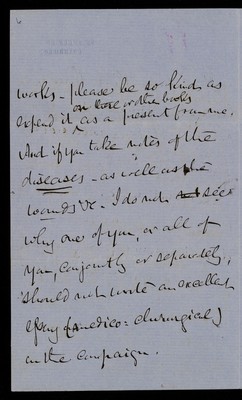 6
works - please be so kind as
on love or the books
expend it as a present from me.
And if you take notes of the
diseases - as well as the
wounds &c - I do not see
why one of you, or all of
you, conjointly or separately,
should not write an excellent
Essay (medico-chirurgical)
on the campaign.